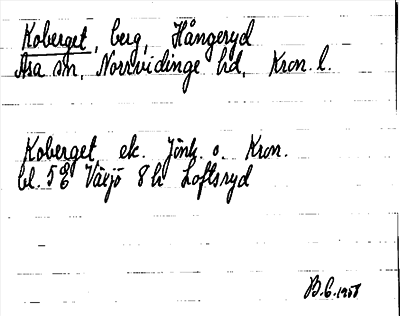 Koberget, berg, Hångeryd
Asa sn, Norrvidinge hd, Kron. l.
Koberget ek. Jönk. o. Kron.
bl. 5 E Växjö 8 h Loftsryd
B.E. 1958